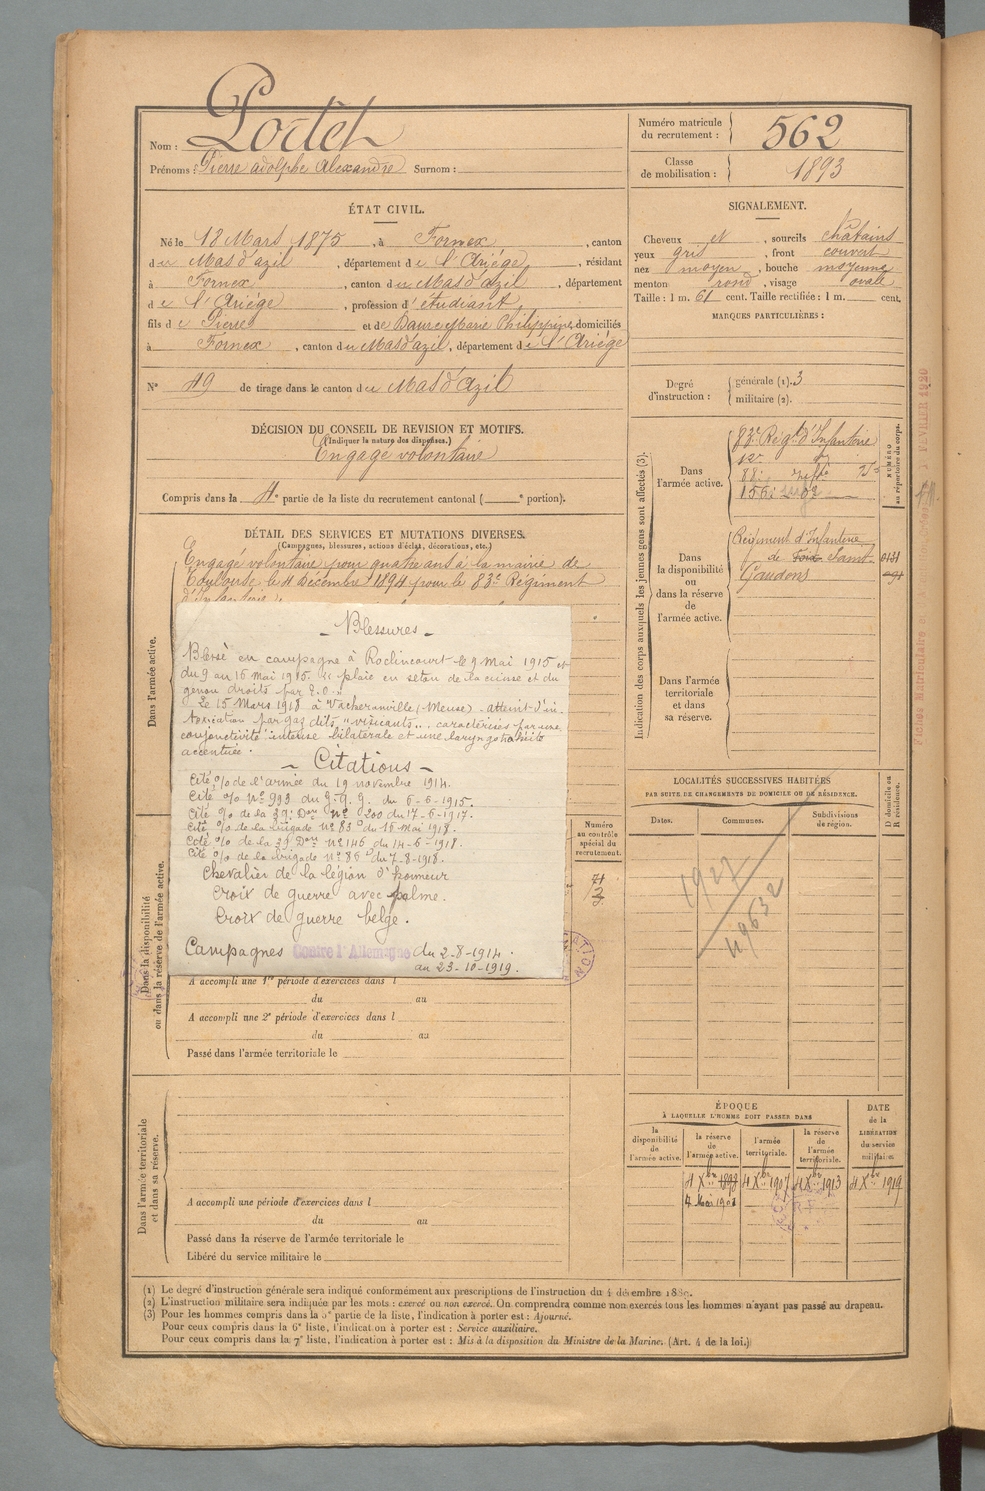 Nom : Portet
Prénoms : Pierre Adolphe Alexandre Surnom :
Numéro matricule du recrutement : 562
Classe de mobilisation : 1893
ÉTAT CIVIL.
Né le 18 Mars 1875, à Fornex, canton
du Mas d'azil, département de l'Ariége, résidant
à Fornex, canton du Mas d'azil, département
de l'Ariége, profession d'étudiant,
fils de Pierre et de Daure Marie Philippine, domiciliés
à Fornex, canton du Mas d'azil, département de l'Ariége
N° 49 de tirage dans le canton du Mas d'Azil
DÉCISION DU CONSEIL DE REVISION ET MOTIFS.
(Indiquer la nature des dispenses.)
Engagé volontaire
Compris dans la 4e partie de la liste du recrutement cantonal ( e portion).
DÉTAIL DES SERVICES ET MUTATIONS DIVERSES.
(Campagnes, blessures, actions d'éclat, décorations, etc.)
Engagé volontaire pour quatre ans à la mairie de
Toulouse le 4 Décembre 1894 pour le 83e Régiment
d'Infanterie
Dans l'armée active.
- Blessures -
Blessé en campagne à Roclincourt le 9 mai 1915 et
du 9 au 16 mai 1915. "plaie en seton de la cuisse et du
genou droits par E.O."
Le 15 Mars 1918 à Vacherauville (Meuse) - atteint d'in-
toxication par gaz dits "vésicants", caractérisés par une
conjonctivité intense bilatérale et une laryngotrachéite
accentuée.
- Citations -
Cité o/o de l'armée du 19 novembre 1914.
Cité o/o N° 993 du G.Q.G. du 6-6-1915.
Cité o/o de la 39e Don N° 200 du 17-6-1917.
Cité o/o de la brigade N° 83 du 16 mai 1918.
Cité o/o de la 39 Don N° 146 du 14-6-1918.
Cité o/o de la brigade N° 86 du 7-8-1918.
Chevalier de la légion d'honneur
Croix de guerre avec palme.
Croix de guerre belge.
Campagnes Contre l'Allemagne du 2-8-1914.
au 23-10-1919.
Dans la disponibilité
ou dans la réserve de l'armée active.
A accompli une 1re période d'exercices dans l
du au
A accompli une 2e période d'exercices dans l
du au
Passé dans l'armée territoriale le
Dans l'armée territoriale
et dans sa réserve.
A accompli une période d'exercices dans l
du au
Passé dans la réserve de l'armée territoriale le
Libéré du service militaire le
Numéro
au contrôle
spécial du
recrutement.
SIGNALEMENT.
Cheveux et , sourcils châtains
yeux gris , front couvert
nez moyen , bouche moyenne
menton rond , visage ovale
Taille : 1 m. 61 cent. Taille rectifiée : 1 m. cent.
MARQUES PARTICULIÈRES :
Degré
d'instruction :
générale (1). 3
militaire (2).
Indication des corps auxquels les jeunes gens sont affectés (3).
NUMÉRO
au répertoire du corps.
Dans
l'armée active.
83e Régt d'Infanterie
12e
88e
156e
Dans
la disponibilité
ou
dans la réserve
de
l'armée active.
Régiment d'Infanterie
de Foix Saint-
Gaudens
Dans l'armée
territoriale
et dans
sa réserve.
1 FEVRIER 1920
LOCALITÉS SUCCESSIVES HABITÉES
PAR SUITE DE CHANGEMENTS DE DOMICILE OU DE RÉSIDENCE.
Dates.
Communes.
Subdivisions
de région.
D domicile ou
R résidence.
1927
49632
ÉPOQUE
À LAQUELLE L'HOMME DOIT PASSER DANS
la
disponibilité
de
l'armée active.
la réserve
de
l'armée active.
l'armée
territoriale.
la réserve
de
l'armée
territoriale.
DATE
de la
LIBÉRATION
du service
militaire
4 Xbre 1898 4 Xbre 1907 4 Xbre 1913 4 Xbre 1919
(1) Le degré d'instruction générale sera indiqué conformément aux prescriptions de l'instruction du 4 décembre 1889.
(2) L'instruction militaire sera indiquée par les mots : exercé ou non exercé. On comprendra comme non exercés tous les hommes n'ayant pas passé au drapeau.
(3) Pour les hommes compris dans la 5e partie de la liste, l'indication à porter est : Ajourné.
Pour ceux compris dans la 6e liste, l'indication à porter est : Service auxiliaire.
Pour ceux compris dans la 7e liste, l'indication à porter est : Mis à la disposition du Ministre de la Marine. (Art. 4 de la loi.)